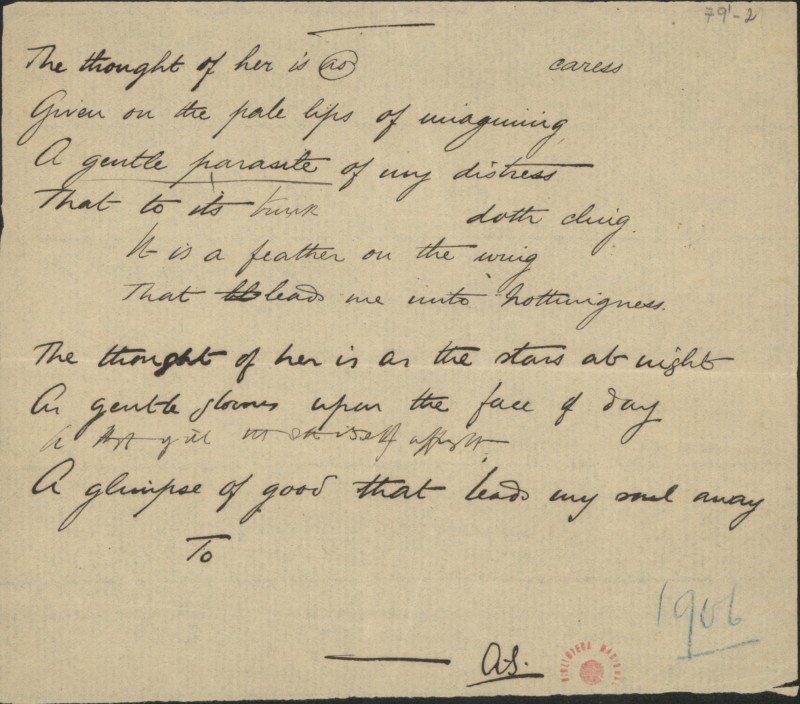 79¹-2
The thought of her is as caress
Given on the pale lips of imagining,
A gentle parasite of my distress
That to its trunk doth cling.
It is a feather on the wing
That leads me unto nothingness.
The thought of her is as the stars at night
As gentle glooms upon the face of day
A
A glimpse of good that leads my soul away
To
1906
A.S.
BIBLIOTECA NACIONAL